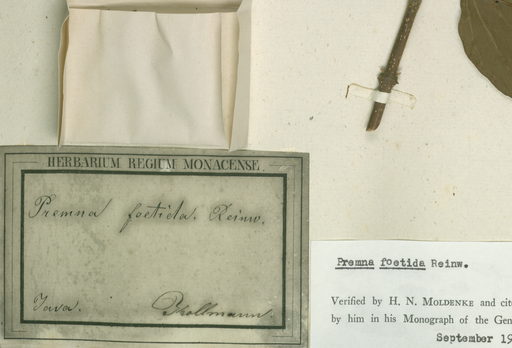 HERBARIUM REGIUM MONACENSE.
Premna foetida. Reinw.
Java. Kollmann.
Premna foetida Reinw.
Verified by H. N. MOLDENKE and cite
by him in his Monograph of the Gen
September 19